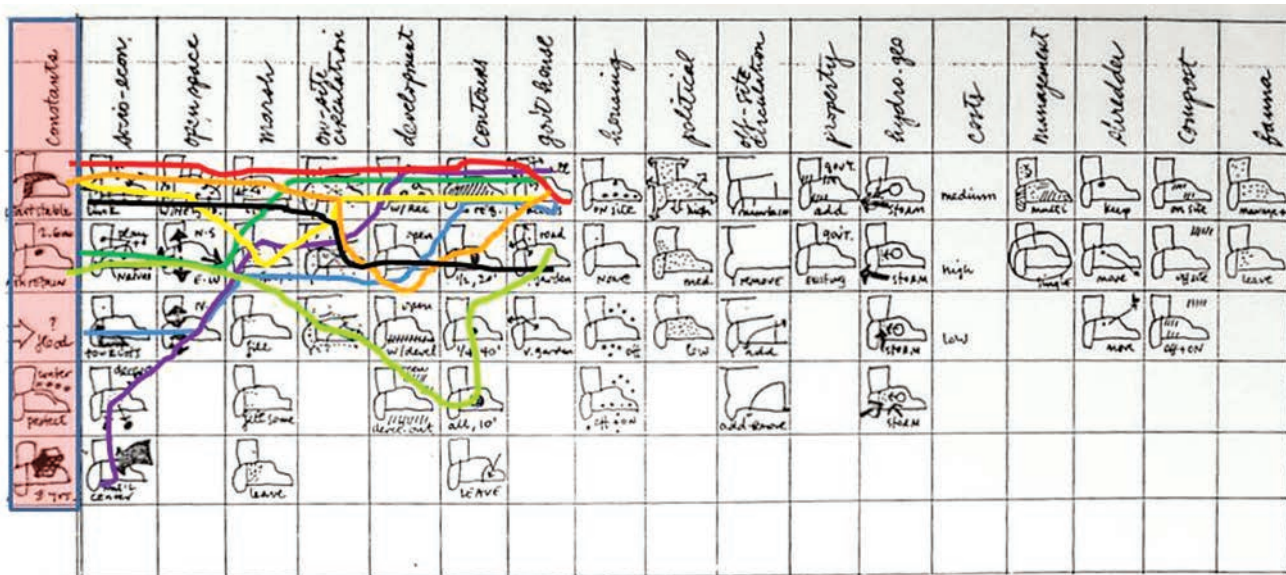 constants
socio-econ.
open space
marsh
on-site
circulation
development
contours
gov't house
housing
political
off-site
circulation
property
hydro.geo
costs
management
shredder
compost
fauna
stable
w/rec
on site
high
gov't.
add
storm
medium
multi
keep
on site
manage
N-S
E-W
open
1/2, 20'
road
garden
move
med.
remove
gov't.
existing
storm
high
single
move
off site
leave
?
flood
N.
fill
open
w/devel
1/4, 40'
v. garden
off
low
add
storm
low
move
off + on
water
protect
fill some
devel. out
all, 10'
off + on
add-remove
storm
3 yrs.
center
leave
LEAVE